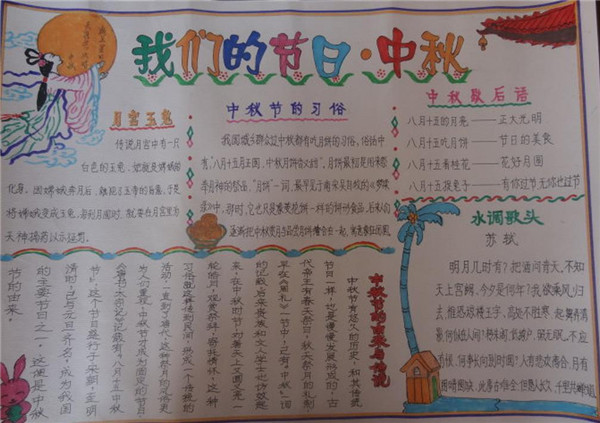 我们的节日·中秋
月宫玉兔
传说月宫中有一只
白色的玉兔，她就是嫦娥的
化身。因嫦娥奔月后，触犯了玉帝的旨意，于是
将嫦娥变成玉兔，每到月圆时，就要在月宫里为
天神捣药以示惩罚。
中秋节的习俗
我国城乡群众过中秋都有吃月饼的习俗，俗话中
有："八月十五月正圆，中秋月饼香又甜"。月饼最初是用来祭
奉月神的祭品，"月饼"一词，最早见于南宋吴自牧的《梦粱
中秋歇后语
八月十五的月亮——正大光明
八月十五吃月饼——节日的美食
八月十五看桂花——花好月圆
八月十五捉兔子——有你过节无你也过节
水调歌头
苏轼
明月几时有？把酒问青天，不知
天上宫阙，今夕是何年？我欲乘风归
去，惟恐琼楼玉宇，高处不胜寒，起舞弄清
影，何似在人间？转朱阁，低绮户，照无眠，不应
有恨，何事长向别时圆？人有悲欢离合，月有
阴晴圆缺，此事古难全，但愿人长久，千里共婵娟。
中秋节的由来与传说
中秋节有悠久的历史，和其它传
节日一样，也是慢慢发展形成的，古
代帝王有春天祭日，秋天祭月的礼制
早在《周礼》一书中，已有"中秋"一词
的记载，后来贵族和文人学士也仿效起
来，在中秋时节，对着天上又圆又亮一
轮皓月，观赏祭拜，寄托情怀，这种
习俗就这样传到民间，形成一个传统的
活动，一直到了唐代，这种祭月的风俗更
为人们重视，中秋节才成为固定的节日
节"，这个节日盛行于宋朝，至明
清时，已与元旦齐名，成为我国
的主要节日之一，这便是中秋
节的由来。